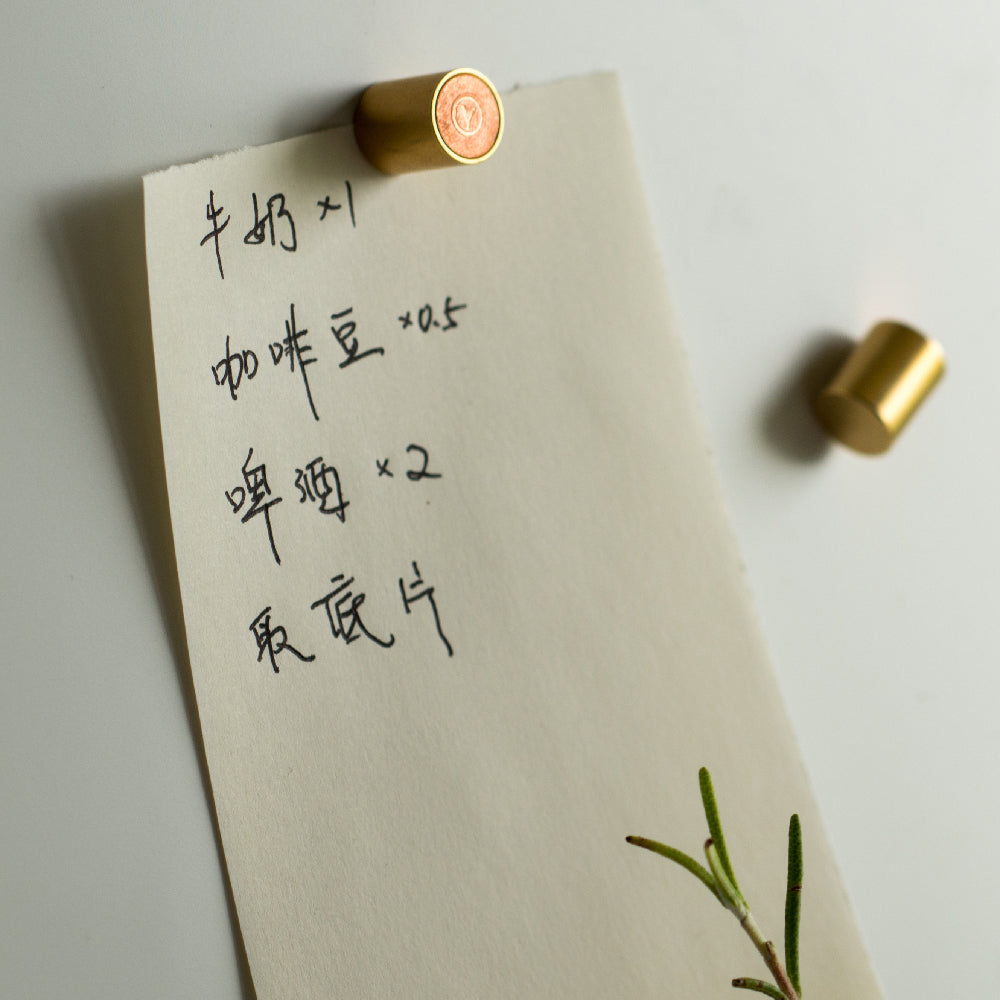 牛奶 ×1
咖啡豆 ×0.5
啤酒 ×2
取底片